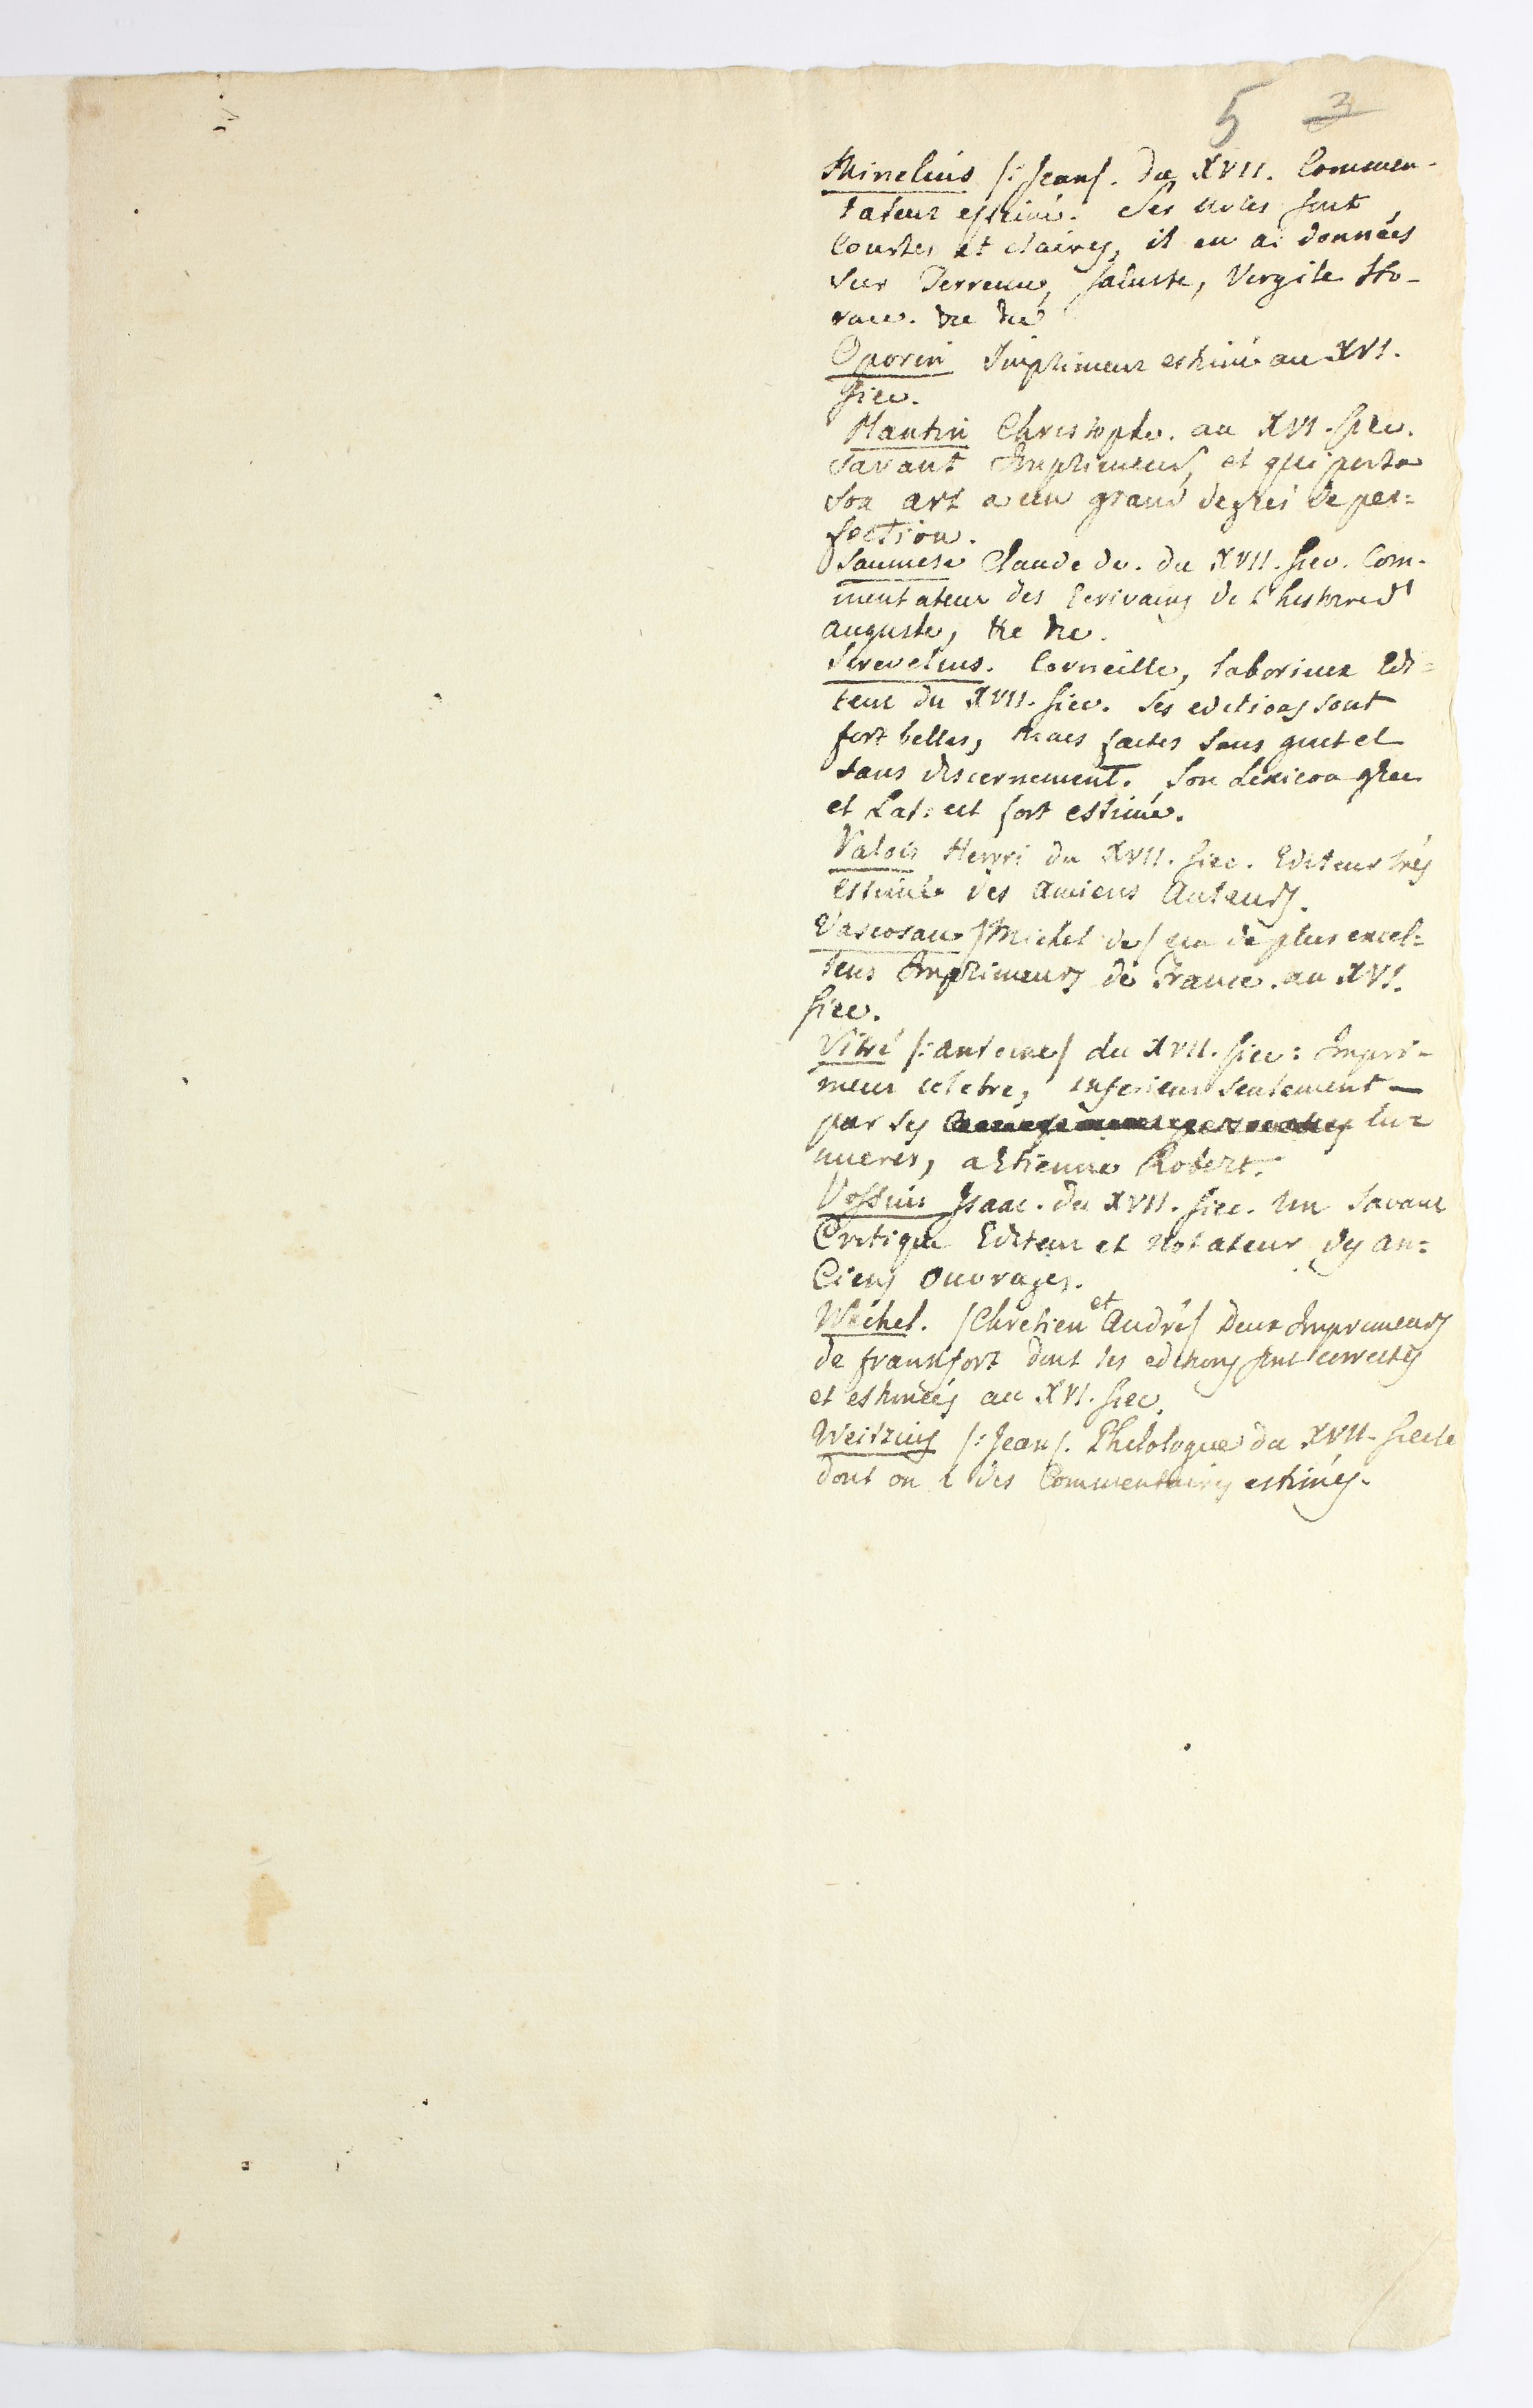 5 3
Minelius /: Jean/. du XVII. Commen-
tateur estimé. Ses notes sont
Courtes et claires, il en a donnés
sur Terrence, Saluste, Vergile Ho-
race. &c &c
Oporin Imprimeur estimé au XVI.
siec.
Plantin Christophe. au XVI. siec.
savant Imprimeur, et qui porta
son art a un grand degrés de per=
fection.
Saumese Claude de. du XVII. siec. Com-
mentateur des Ecrivains de l'histoire d'
Auguste, &c &c.
Screvelius. Corneille, laborieux Edi=
teur du XVII. siec. Ses editions sont
fort belles, mais faites sans gout et
sans discernement. Son Lexicon grec
et Lat: est fort estimé.
Valois Henri du XVII. siec. Editeur très
estimé des Anciens Auteurs.
Vascosan /Michel de/ un de plus excel=
lens Imprimeurs de France. au XVI.
siec.
Vitré /: Antoine/ du XVII. siec: Impri-
meur celebre, inferieur seulement —
par ses lu=
mieres, a Etienne Robert.
Vossius Isaac. du XVII. siec. un savant
Critique Editeur et Notateur des an=
ciens ouvrages.
Wechel. /Chretien et André/ Deux Imprimeurs
de francfort dont les editions sont correctes
et estimées au XVI. siec.
Weitzius /: Jean/. Philologue du XVII. siecle
dont on a des Commentaires estimés.